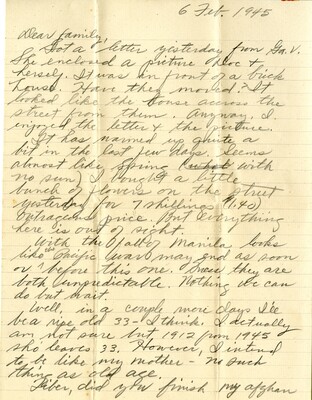 6 Feb. 1945
Dear family,
Got a letter yesterday from Ga. V.
She enclosed a picture Doc &
herself. It was in front of a brick
house. Have they moved? It
looked like the house across the
street from them. Anyway, I
enjoyed the letter & the picture.
It has warmed up quite a
bit in the last few days. Seems
almost like spring with
no sun) I bought a little
bunch of flowers on the street
yesterday for 7 shillings ($1.40)
outrageous price. But everything
here is out of sight.
With the fall of Manila, looks
like the Pacific war may end as soon
or before this one. Guess they are
both unpredictable. Nothing we can
do but wait.
Well, in a couple more days I'll
be a ripe old 33 - I think. I actually
am not sure but 1912 from 1945
sho' leaves 33. However, I intend
to be like my mother - no such
thing as old age.
did you finish my afghan